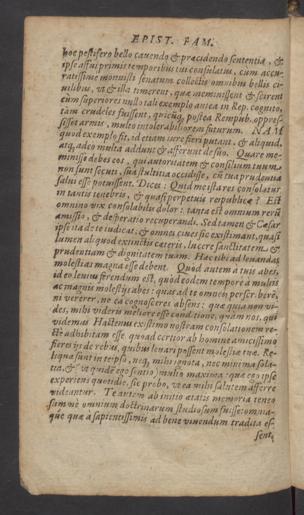 EPIST. FAM.
hoc pestifero bello cavendo & præcidendo sententia, &
ipse affui primis temporibus tui consulatus, cum accu-
ratissime monuisti senatum collectis omnibus bellis ci-
vilibus, ut & illa timerent, quæ meminissent & scirent
cum superiores nullo tali exemplo antea in Rep. cognito,
tam crudeles fuissent, quicuq; postea Rempub. oppres-
sisset armis, multo intolerabiliorem futurum. NAM
quod exemplo fit, id etiam iure fieri putant, & aliquid,
atq; adeo multa addunt & afferunt de suo. Quare me-
minisse debes eos, qui autoritatem & consilium tuum
non sunt secuti, sua stultitia occidisse, cū tua prudentia
salvi esse potuissent. Dices: Quid me ista res consolatur
in tantis tenebris, & quasi perpetuis reipublicæ? Est
omnino vix consolabilis dolor: tanta est omnium rerū
amissio, & desperatio recuperandi. Sed tamen & Cæsar
ipse ita de te iudicat, & omnes cives sic existimant, quasi
lumen aliquod extinctis cæteris, lucere sanctitatem, &
prudentiam & dignitatem tuam. Hæc tibi ad levandas
molestias magna esse debent. Quod autem a tuis abes,
id eo levius ferendum est, quòd eodem tempore a multis
ac magnis molestijs abes: quas ad te omneis perscriberē,
ni vererer, ne ea cognosceres absens: quæ quia non vi-
des, mihi videris meliore esse conditione, quàm nos, qui
videmus. Hactenus existimo nostram consolationem re-
ctè adhibitam esse, quoad certior ab homine amicissimo
fieres ijs de rebus, quibus levari possent molestiæ tuæ. Re-
liqua sunt in te ipso, neq; mihi ignota, nec minima sola-
tia, & (ut quidē ego sentio) multo maxima: quæ ego ipse
experiens quotidie, sic probo, ut ea mihi salutem afferre
videantur. Te autem ab initio ætatis memoria teneo
summè omnium doctrinarum studiosum fuisse: omnia-
que quæ a sapientissimis ad bene vivendum tradita es-
sent,